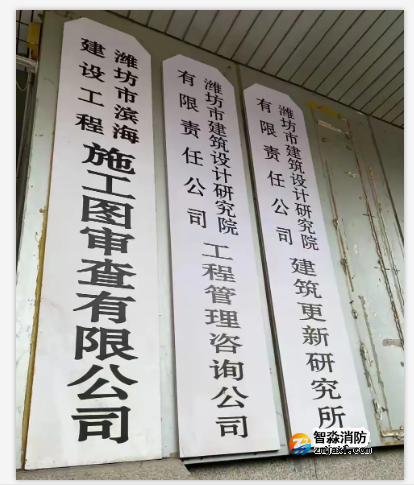 潍坊市滨海
建设工程
施工图审查有限公司
潍坊市建筑设计研究院
有限责任公司
工程管理咨询公司
潍坊市建筑设计研究院
有限责任公司
建筑更新研究所
智淼消防
zmjaxf.com